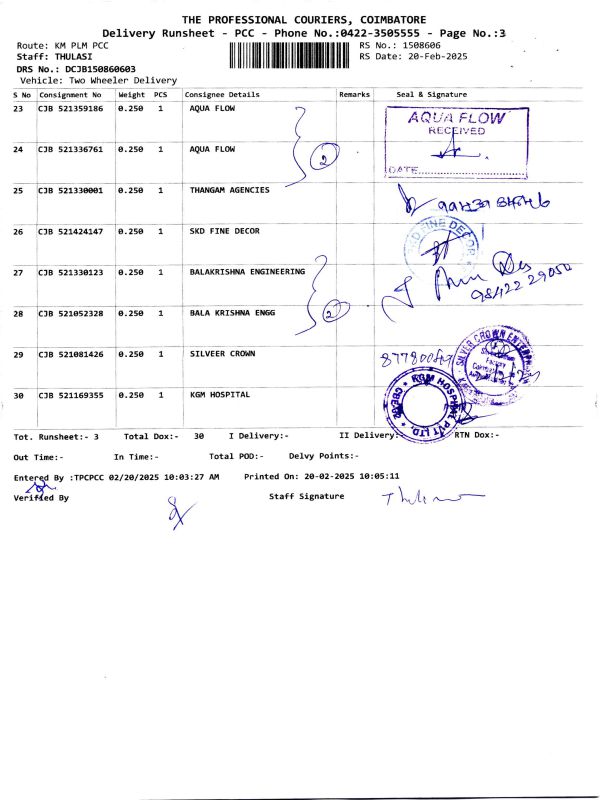 THE PROFESSIONAL COURIERS, COIMBATORE
Delivery Runsheet - PCC - Phone No.:0422-3505555 - Page No.:3
Route: KM PLM PCC RS No.: 1508606
Staff: THULASI RS Date: 20-Feb-2025
DRS No.: DCJB150860603
Vehicle: Two Wheeler Delivery
S No Consignment No Weight PCS Consignee Details Remarks Seal & Signature
23 CJB 521359186 0.250 1 AQUA FLOW
AQUA FLOW
RECEIVED
DATE
24 CJB 521336761 0.250 1 AQUA FLOW 2
25 CJB 521330001 0.250 1 THANGAM AGENCIES
26 CJB 521424147 0.250 1 SKD FINE DECOR
SKD FINE DECOR
27 CJB 521330123 0.250 1 BALAKRISHNA ENGINEERING
98422 29054
28 CJB 521052328 0.250 1 BALA KRISHNA ENGG 2
29 CJB 521081426 0.250 1 SILVEER CROWN
SILVER CROWN ENTERPRISES
Factory
30 CJB 521169355 0.250 1 KGM HOSPITAL
KGM HOSPITAL PVT LTD.
Tot. Runsheet:- 3 Total Dox:- 30 I Delivery:- II Delivery:- RTN Dox:-
Out Time:- In Time:- Total POD:- Delvy Points:-
Entered By :TPCPCC 02/20/2025 10:03:27 AM Printed On: 20-02-2025 10:05:11
Verified By Staff Signature